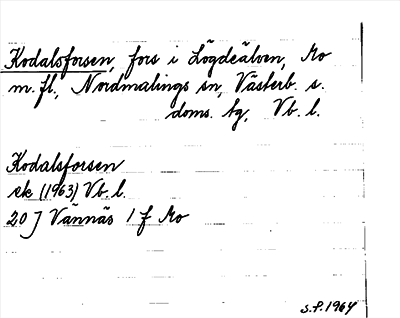 Kodalsforsen, fors i Lögdeälven, Mo
m.fl., Nordmalings sn, Västerb. s.
doms. tg, Vb. l.
Kodalsforsen
ek (1963) Vb. l.
20 J Vännäs 1 f Mo
S.P. 1964